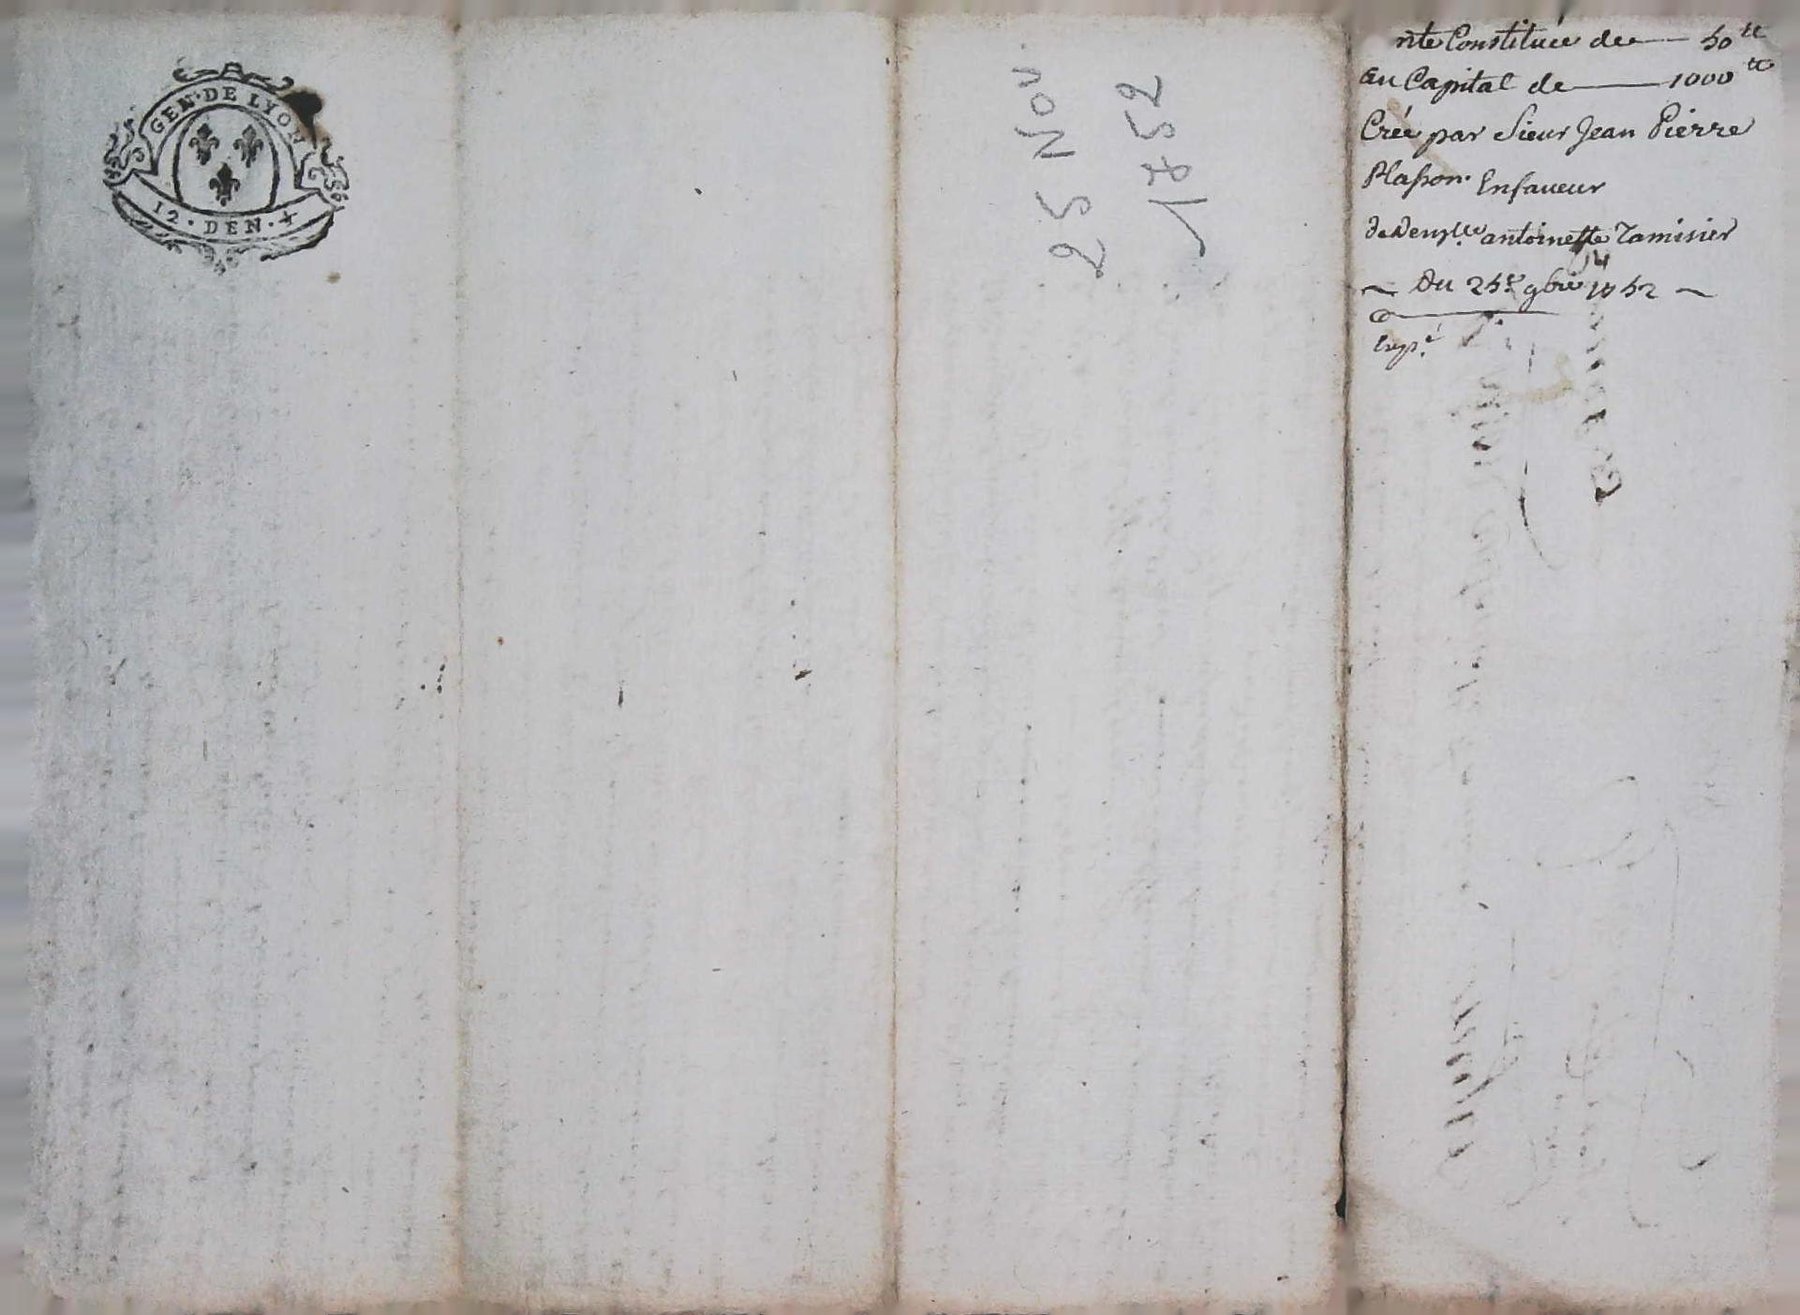 GEN. DE LYON
12 . DEN . 4
25 Nov
1752
rite Constituée de — 50ᵗᵗ
au Capital de — 1000ᵗᵗ
Créé par Sieur Jean Pierre
Plasson. Enfaveur
de Demˡˡᵉ antoinette Tamisier
~ Du 25ᵉ 9bre 1752 ~
Expᵉ